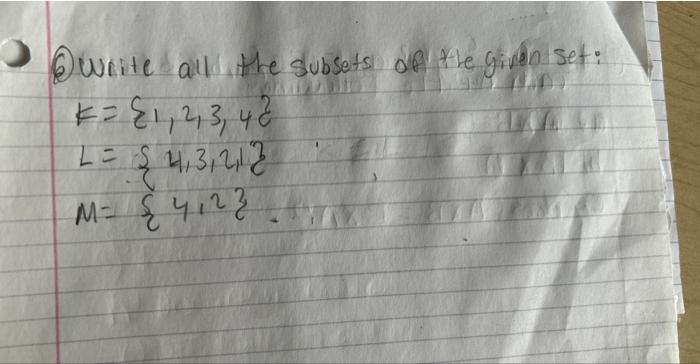 ⑥ Write all the subsets of the given set:
K = {1, 2, 3, 4}
L = { 4, 3, 2, 1 }
M = { 4, 2 }